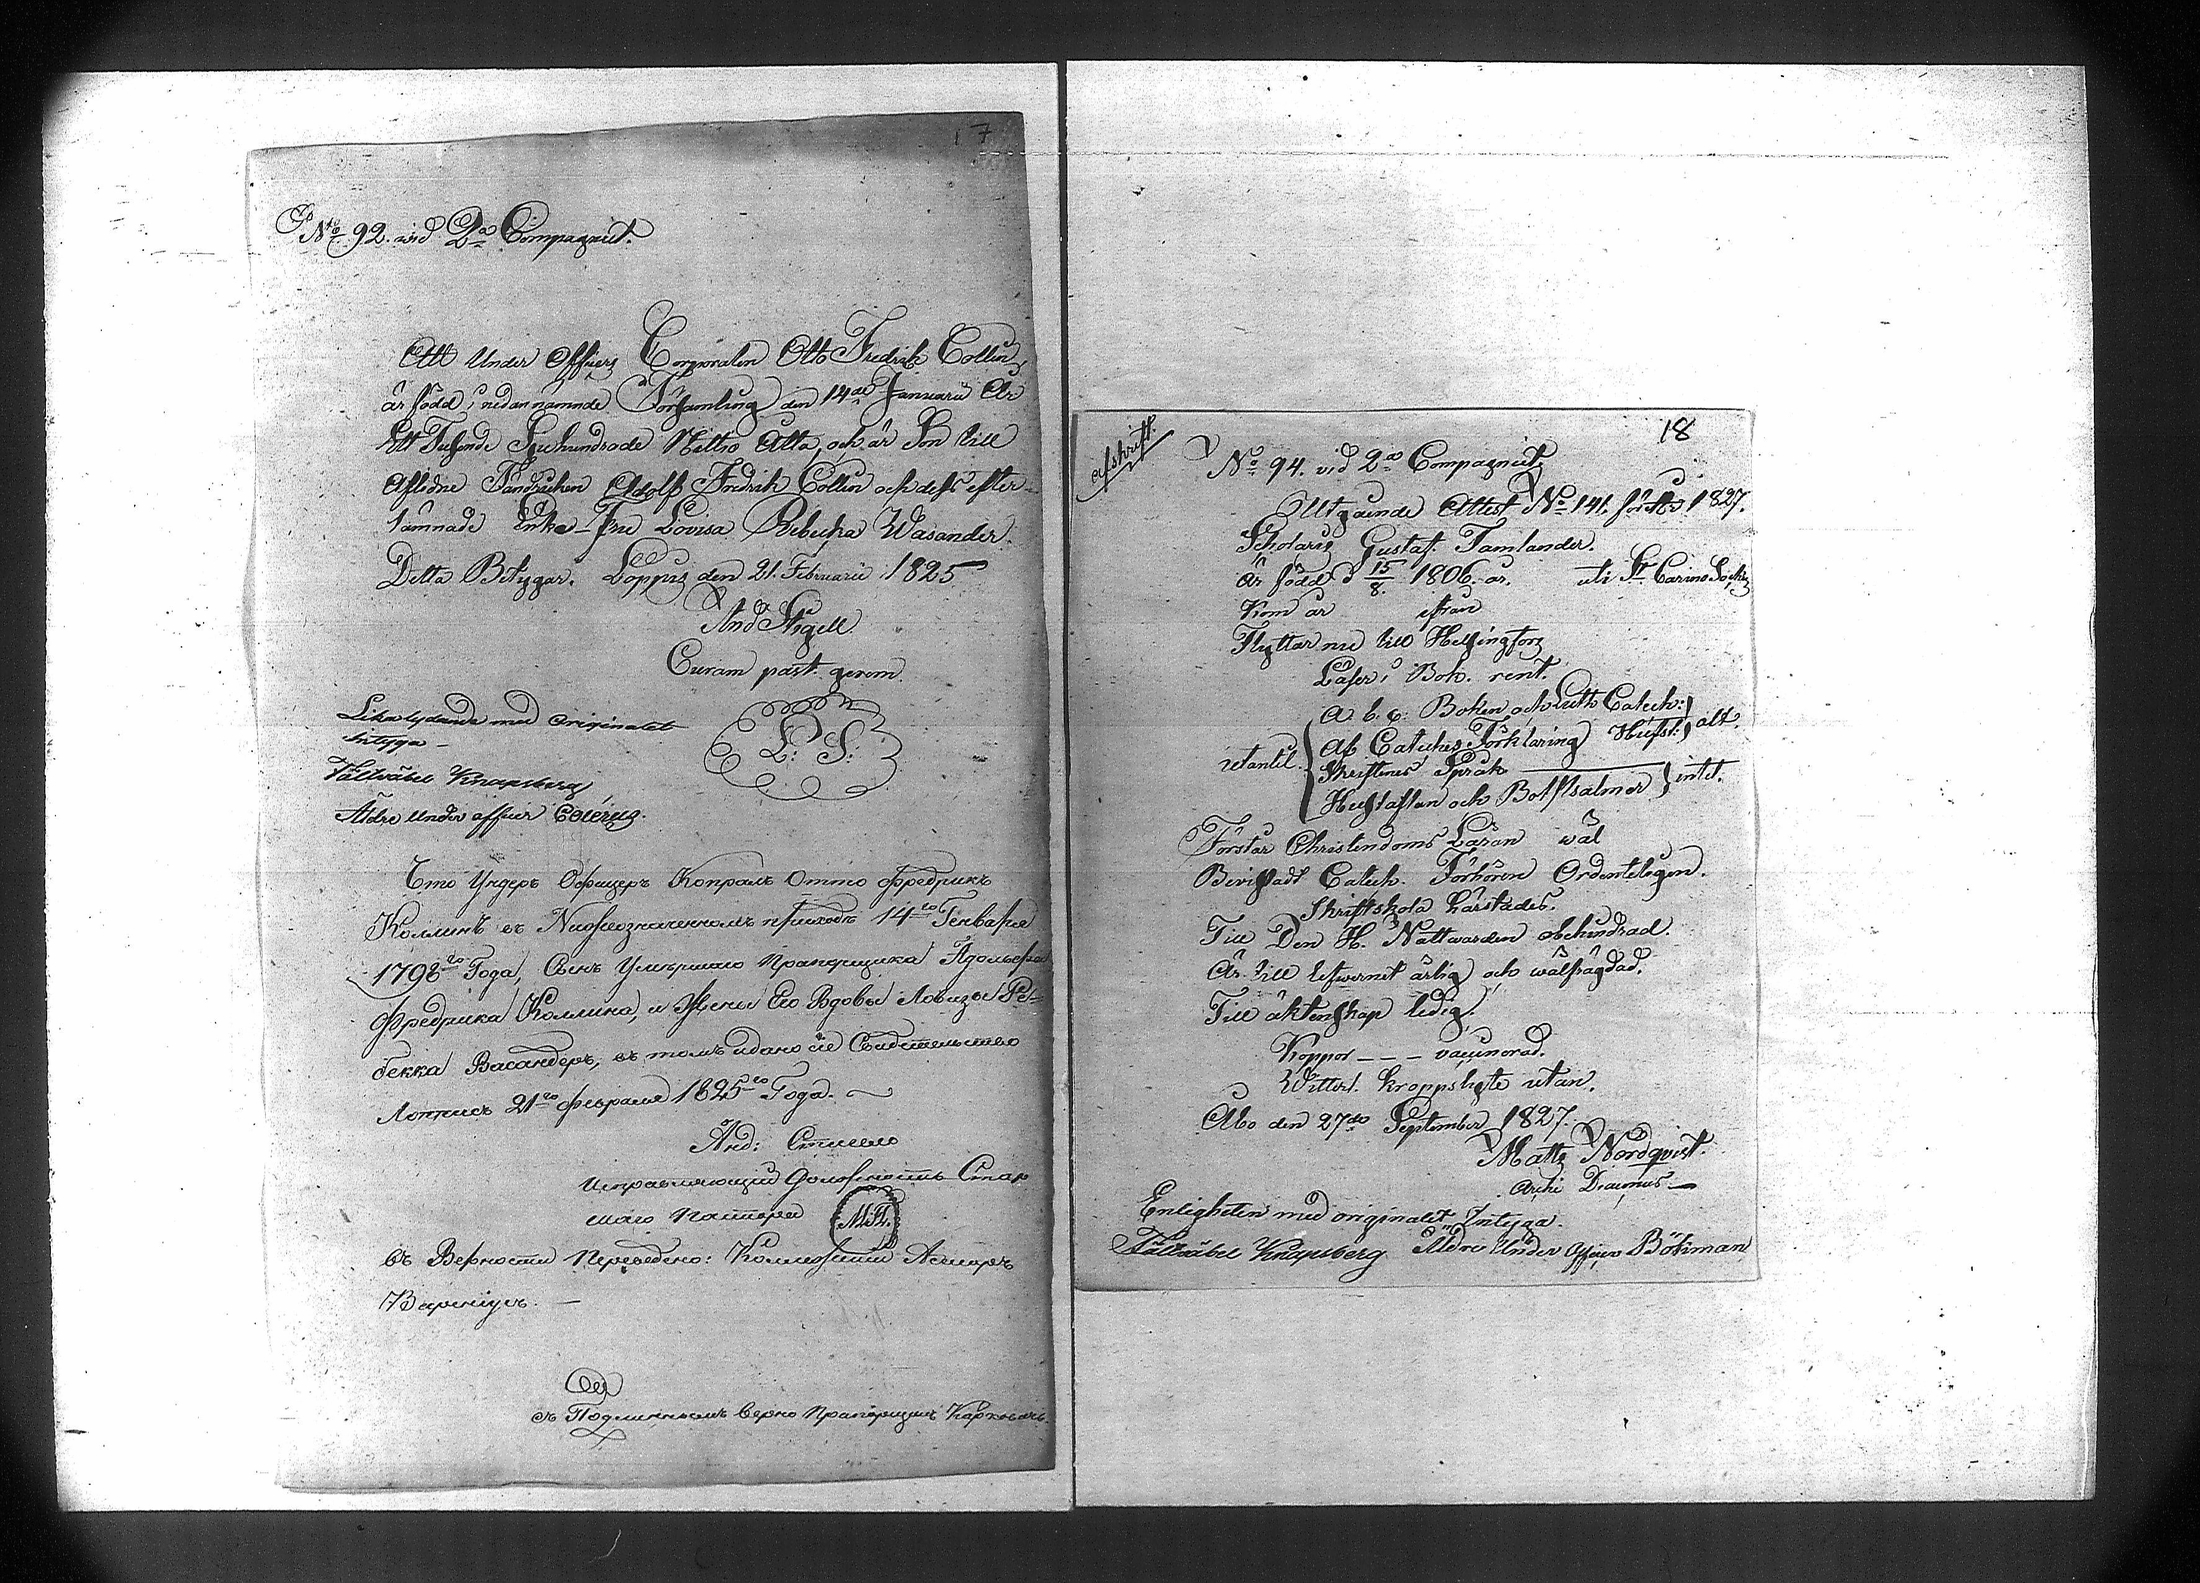 17
No 92. vid 2a Compagniet.
Att Under Officers Corporalen Otto Fredrik Collin,
är född i nedannämnde Församling den 14de Januarii År
Ett Tusende Sjuhundrade Nittio Åtta, och är Son till
Aflidne Fändricken Adolf Fredrik Collin och dess efter-
lämnade Enka Fru Lovisa Rebecka Wasander.
Detta Betygar. Loppis den 21. Februarii 1825
And Stigell
Curam past. gerens.
Likalydande med Originalet
intyga –
Fältväbel Knapsberg
Äldre Under officer
L: S:
Что Ундеръ Офицеръ Копралъ Отто Фредрикъ
Коллинъ въ Нижеозначенномъ приходѣ 14го Генваря
1798го Года, Сынъ Умершаго Прапорщика Адольфа
Фредрика Коллина, и Жены Его Вдовы Ловизы Ре-
бекка Васандеръ, въ томъ и дано сіе Свидетельство
Лопписъ 21го февраля 1825го Года.
Анд: Стигелъ
исправляющий должность Стар
шаго Пастора
М.П.
въ Верности Переведено: Коллежский Асесоръ
съ Подлиннымъ верно Прапорщикъ
18
afskrift.
No 94. vid 2a Compagniet
Utgående Attest No 141. för år 1827.
Scholaris Gustaf Tamlander.
är född d 15/8. 1806. år. uti St Carins Sockn
Kom år ifrån
Flyttar nu till Helsingfors
Läser i Bok. rent.
utantil. A. b. c. Boken och Luth Catech:
Af Catches Förklaring Hufst: alt.
Skriftenes Språk
Hustaflan och Botpsalmer intet.
Förstår Christendoms Läran wäl
Bevistadt Catech. Förhören Ordenteligen.
Skriftskola härstädes.
Till Den H. Nattwarden obehindrad.
Är till lefwernet ärlig och wälfrägdad.
Till äktenskap ledig.
Koppor – – – vaccinerad.
Witterl. kroppslyte utan.
Åbo den 27de September 1827.
Matts Nordqvist.
Archi Diaconus
Enligheten med originalet Intyga.
Fältväbel Knapsberg Äldre Under Officer Böhman